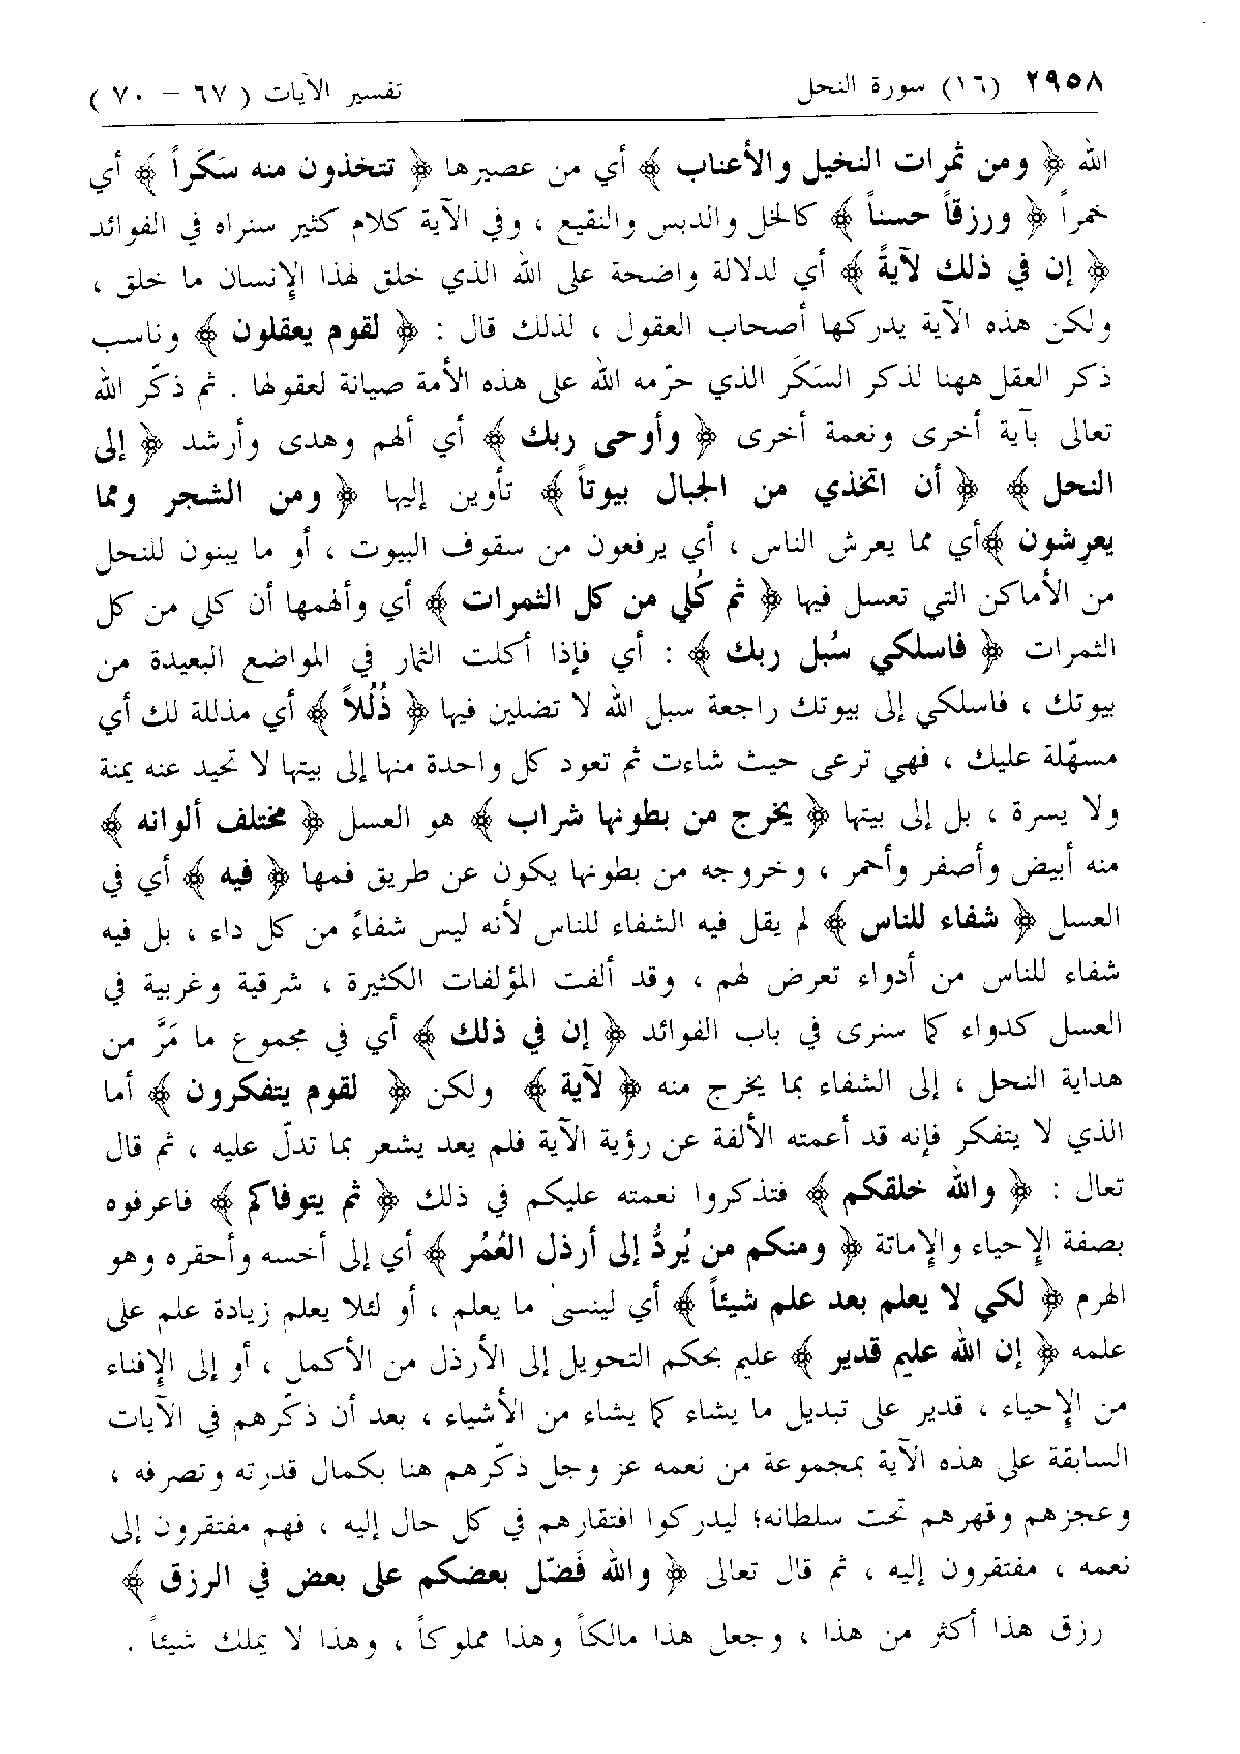 ٢٩٥٨ (١٦) سورة النحل تفسير الآيات ( ٦٧ - ٧٠ )
الله ﴿ ومن ثمرات النخيل والأعناب ﴾ أي من عصيرها ﴿ تتخذون منه سَكَراً ﴾ أي
خمراً ﴿ ورزقاً حسناً ﴾ كالخل والدبس والنقيع ، وفي الآية كلام كثير سنراه في الفوائد
﴿ إن في ذلك لآيةً ﴾ أي لدلالة واضحة على الله الذي خلق لهذا الإنسان ما خلق ،
ولكن هذه الآية يدركها أصحاب العقول ، لذلك قال : ﴿ لقوم يعقلون ﴾ وناسب
ذكر العقل ههنا لذكر السَكَر الذي حرّمه الله على هذه الأمة صيانة لعقولها . ثم ذكّر الله
تعالى بآية أخرى ونعمة أخرى ﴿ وأوحى ربك ﴾ أي ألهم وهدى وأرشد ﴿ إلى
النحل ﴾ ﴿ أن اتخذي من الجبال بيوتاً ﴾ تأوين إليها ﴿ ومن الشجر ومما
يعرِشون ﴾أي مما يعرش الناس ، أي يرفعون من سقوف البيوت ، أو ما يبنون للنحل
من الأماكن التي تعسل فيها ﴿ ثم كُلي من كل الثمرات ﴾ أي وألهمها أن كلي من كل
الثمرات ﴿ فاسلكي سُبل ربك ﴾ : أي فإذا أكلت الثمار في المواضع البعيدة من
بيوتك ، فاسلكي إلى بيوتك راجعة سبل الله لا تضلين فيها ﴿ ذُلُلاً ﴾ أي مذللة لك أي
مسهّلة عليك ، فهي ترعى حيث شاءت ثم تعود كل واحدة منها إلى بيتها لا تحيد عنه يمنة
ولا يسرة ، بل إلى بيتها ﴿ يخرج من بطونها شراب ﴾ هو العسل ﴿ مختلف ألوانه ﴾
منه أبيض وأصفر وأحمر ، وخروجه من بطونها يكون عن طريق فمها ﴿ فيه ﴾ أي في
العسل ﴿ شفاء للناس ﴾ لم يقل فيه الشفاء للناس لأنه ليس شفاءً من كل داء ، بل فيه
شفاء للناس من أدواء تعرض لهم ، وقد ألفت المؤلفات الكثيرة ، شرقية وغربية في
العسل كدواء كما سنرى في باب الفوائد ﴿ إن في ذلك ﴾ أي في مجموع ما مَرَّ من
هداية النحل ، إلى الشفاء بما يخرج منه ﴿ لآية ﴾ ولكن ﴿ لقوم يتفكرون ﴾ أما
الذي لا يتفكر فإنه قد أعمته الألفة عن رؤية الآية فلم يعد يشعر بما تدلّ عليه ، ثم قال
تعال : ﴿ والله خلقكم ﴾ فتذكروا نعمته عليكم في ذلك ﴿ ثم يتوفاكم ﴾ فاعرفوه
بصفة الإحياء والإماتة ﴿ ومنكم من يُردُّ إلى أرذل العُمُر ﴾ أي إلى أخسه وأحقره وهو
الهرم ﴿ لكي لا يعلم بعد علم شيئاً ﴾ أي لينسى ما يعلم ، أو لئلا يعلم زيادة علم على
علمه ﴿ إن الله عليم قدير ﴾ عليم بحكم التحويل إلى الأرذل من الأكمل ، أو إلى الإفناء
من الإحياء ، قدير على تبديل ما يشاء كما يشاء من الأشياء ، بعد أن ذكّرهم في الآيات
السابقة على هذه الآية بمجموعة من نعمه عز وجل ذكّرهم هنا بكمال قدرته وتصرفه ،
وعجزهم وقهرهم تحت سلطانه؛ ليدركوا افتقارهم في كل حال إليه ، فهم مفتقرون إلى
نعمه ، مفتقرون إليه ، ثم قال تعالى ﴿ والله فَضّل بعضكم على بعض في الرزق ﴾
رزق هذا أكثر من هذا ، وجعل هذا مالكاً وهذا مملوكاً ، وهذا لا يملك شيئاً .